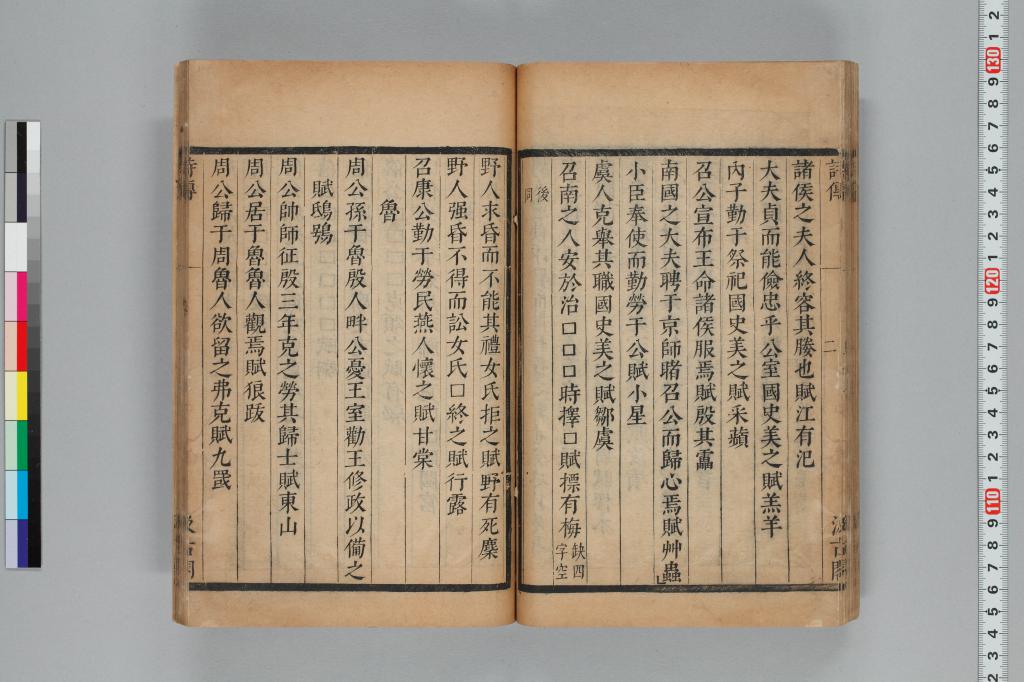 諸侯之夫人終容其媵也賦江有汜
大夫貞而能儉忠乎公室國史美之賦羔羊
內子勤于祭祀國史美之賦采蘋
召公宣布王命諸侯服焉賦殷其靁
南國之大夫聘于京師睹召公而歸心焉賦艸蟲
小臣奉使而勤勞于公賦小星
虞人克舉其職國史美之賦騶虞
召南之人安於治口口口時擇口賦摽有梅缺四字空
後同
野人求昏而不能其禮女氏拒之賦野有死麇
野人强昏不得而訟女氏口終之賦行露
召康公勤于勞民燕人懷之賦甘棠
魯
周公孫于魯殷人畔公憂王室勸王修政以備之
賦鴟鴞
周公帥師征殷三年克之勞其歸士賦東山
周公居于魯魯人觀焉賦狼跋
周公歸于周魯人欲留之弗克賦九罭
詩傳
二
汲古閣